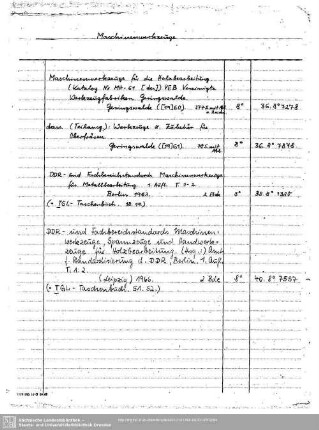 Maschinenwerkzeuge
Maschinenwerkzeuge für die Holzbearbeitung.
(Katalog Nr. [der] VEB Vereinigte
Werkzeugfabriken Geringswalde.
Geringswalde ([19]60). 8° 36. 8° 7278
dass. (Teilausg.): Werkzeuge u. Zubehör für
Oberfräsen
Geringswalde ([19]60) 8° 36. 8° 7848
DDR- und Fachbereichstandards Maschinenwerkzeuge
für Metallbearbeitung 1. Aufl. T. 1-2
Berlin 2 Bde 8°
(= TGL-Taschenbuch.
DDR- und Fachbereichstandards Maschinen-
werkzeuge, Spannzeuge und Handwerk-
zeuge für Holzbearbeitung (Hrsg.:) Amt
f. Standardisierung d. DDR, Berlin. 1. Aufl.
T. 1. 2.
(Leipzig) 1966. 2 Bde 8° 40. 8° 7557
(= TGL-Taschenbuch. 51. 52.)